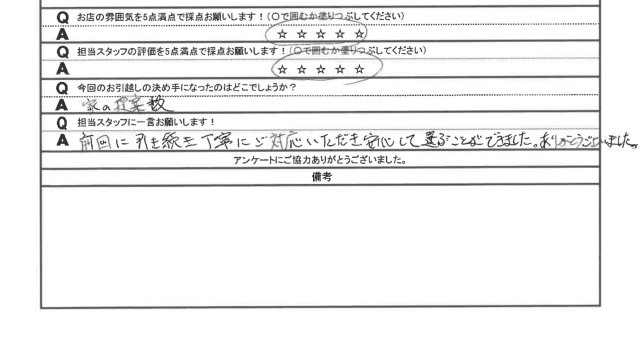 Q お店の雰囲気を5点満点で採点お願いします!(〇で囲むか塗りつぶしてください)
A ☆ ☆ ☆ ☆ ☆
Q 担当スタッフの評価を5点満点で採点お願いします!(〇で囲むか塗りつぶしてください)
A ☆ ☆ ☆ ☆ ☆
Q 今回のお引越しの決め手になったのはどこでしょうか?
A 家の提案数
Q 担当スタッフに一言お願いします!
A 前回に引き続き丁寧にご対応いただき安心して選ぶことができました。ありがとうございました。
アンケートにご協力ありがとうございました。
備考